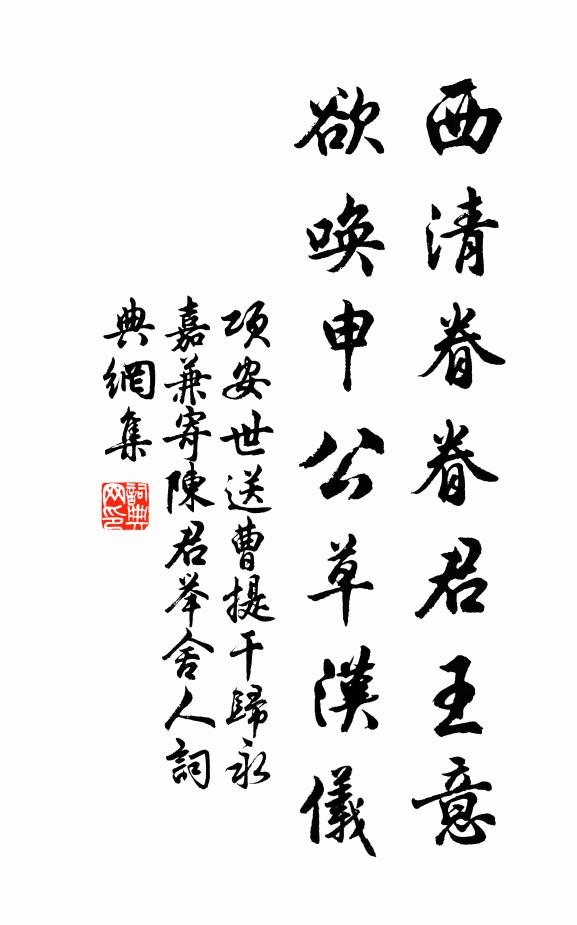 西清眷眷君王意
欲喚申公草漢儀
項安世送曹提干歸永
嘉兼寄陳君举舍人詞
典網集
詞典
网印